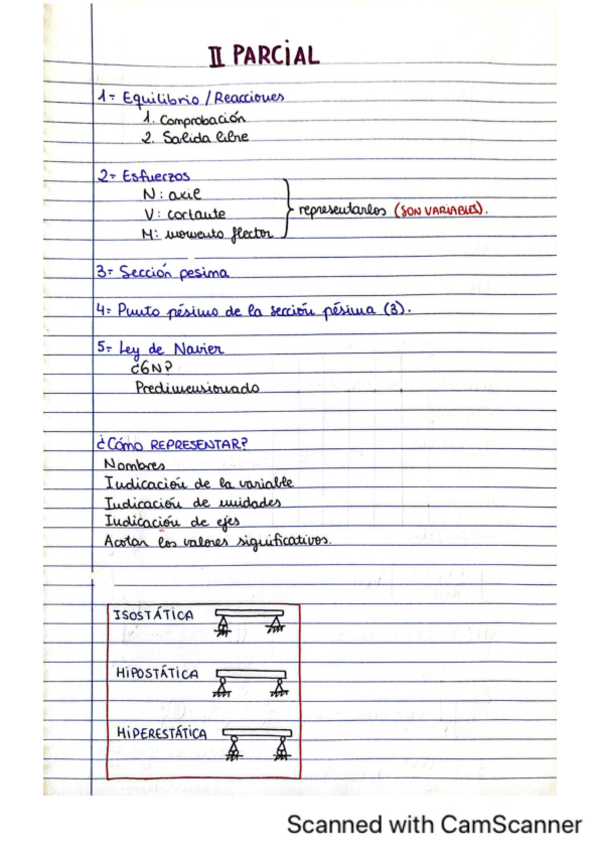 II PARCIAL
1- Equilibrio / Reacciones
1. Comprobación
2. Salida libre
2- Esfuerzos
N: axil
V: cortante
M: momento flector
representarlos (SON VARIABLES).
3- Sección pesima
4- Punto pésimo de la sección pésima (3).
5- Ley de Navier
Predimensionado
¿Cómo REPRESENTAR?
Nombres
Indicación de la variable
Indicación de unidades
Indicación de ejes
Acotar los valores significativos.
ISOSTÁTICA
HIPOSTÁTICA
HIPERESTÁTICA
Scanned with CamScanner